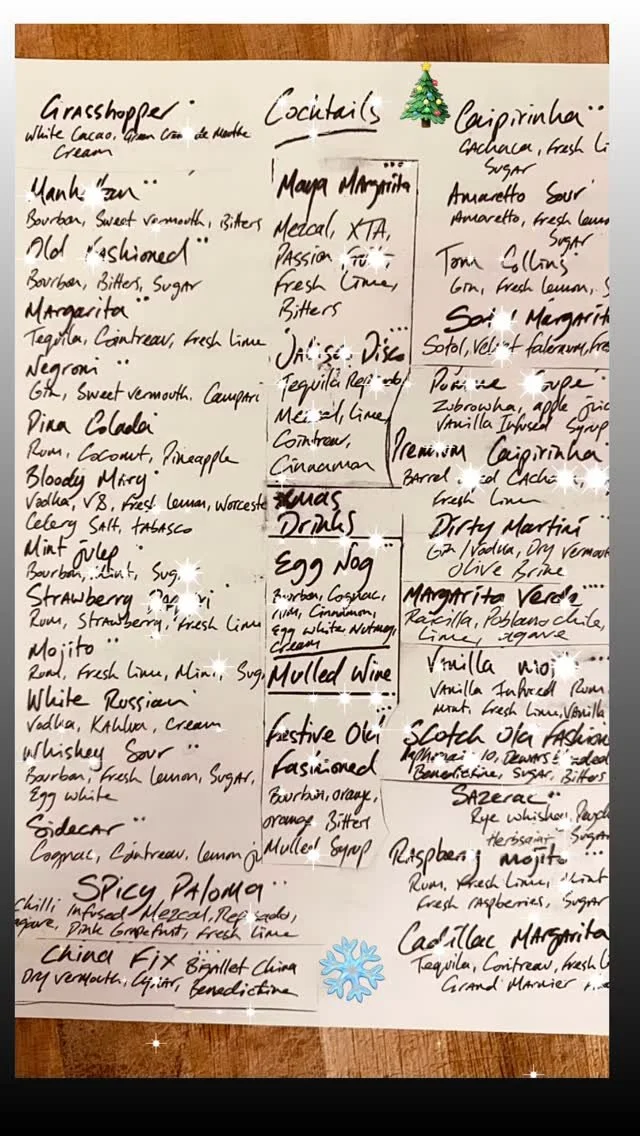 Cocktails
Grasshopper
White Cacao, Green Creme de Menthe
Cream
Manhattan
Bourbon, Sweet vermouth, Bitters
Old Fashioned
Bourbon, Bitters, Sugar
Margarita
Tequila, Cointreau, Fresh Lime
Negroni
Gin, Sweet vermouth, Campari
Pina Colada
Rum, Coconut, Pineapple
Bloody Mary
Vodka, V8, Fresh lemon, Worceste
Celery Salt, tabasco
Mint Julep
Bourbon, Mint, Sugar
Strawberry Daquiri
Rum, Strawberry, Fresh Lime
Mojito
Rum, Fresh Lime, Mint, Sug
White Russian
Vodka, Kahlua, Cream
Whiskey Sour
Bourbon, Fresh Lemon, Sugar,
Egg white
Sidecar
Cognac, Cointreau, lemon ju
SPICY PALOMA
Chilli Infused Mezcal, Reposado,
agave, Pink Grapefruit, Fresh Lime
China Fix Bigallet China
Dry vermouth, Benedictine
Maya Margarita
Mezcal, XTA,
Passion Fruit,
Fresh Lime,
Bitters
Jalisco Disco
Tequilla Reposado,
Mezcal, Lime,
Cointreau,
Cinnamon
Xmas
Drinks
Egg Nog
Bourbon, Cognac,
rum, Cinnamon,
Egg White, Nutmeg,
Cream
Mulled Wine
Festive Old
Fashioned
Bourbon, orange,
orange Bitters
Mulled Syrup
Caipirinha
Cachaca, Fresh Li
Sugar
Amaretto Sour
Amaretto, Fresh lemon
Sugar
Tom Collins
Gin, Fresh lemon, S
Sotol Margarit
Sotol, Velvet falernum, Fre
Coupe
Zubrowka, apple juic
Vanilla Infused Syrup
Premium Caipirinha
Barrel aged Cachaca,
Fresh Lime
Dirty Martini
Gin/Vodka, Dry vermout
Olive Brine
Margarita Verde
Raicilla, Poblano chile,
Lime, agave
Vanilla mojito
Vanilla Infused Rum
Mint, Fresh Lime, Vanilla
Scotch Old Fashion
10, Dewars
Benedictine, Sugar, Bitters
Sazerac
Rye whiskey, Peych
Herbsaint Sugar
Raspberry Mojito
Rum, Fresh Lime, Mint
Fresh raspberries, Sugar
Cadillac Margarita
Tequila, Cointreau, Fresh L
Grand Marnier